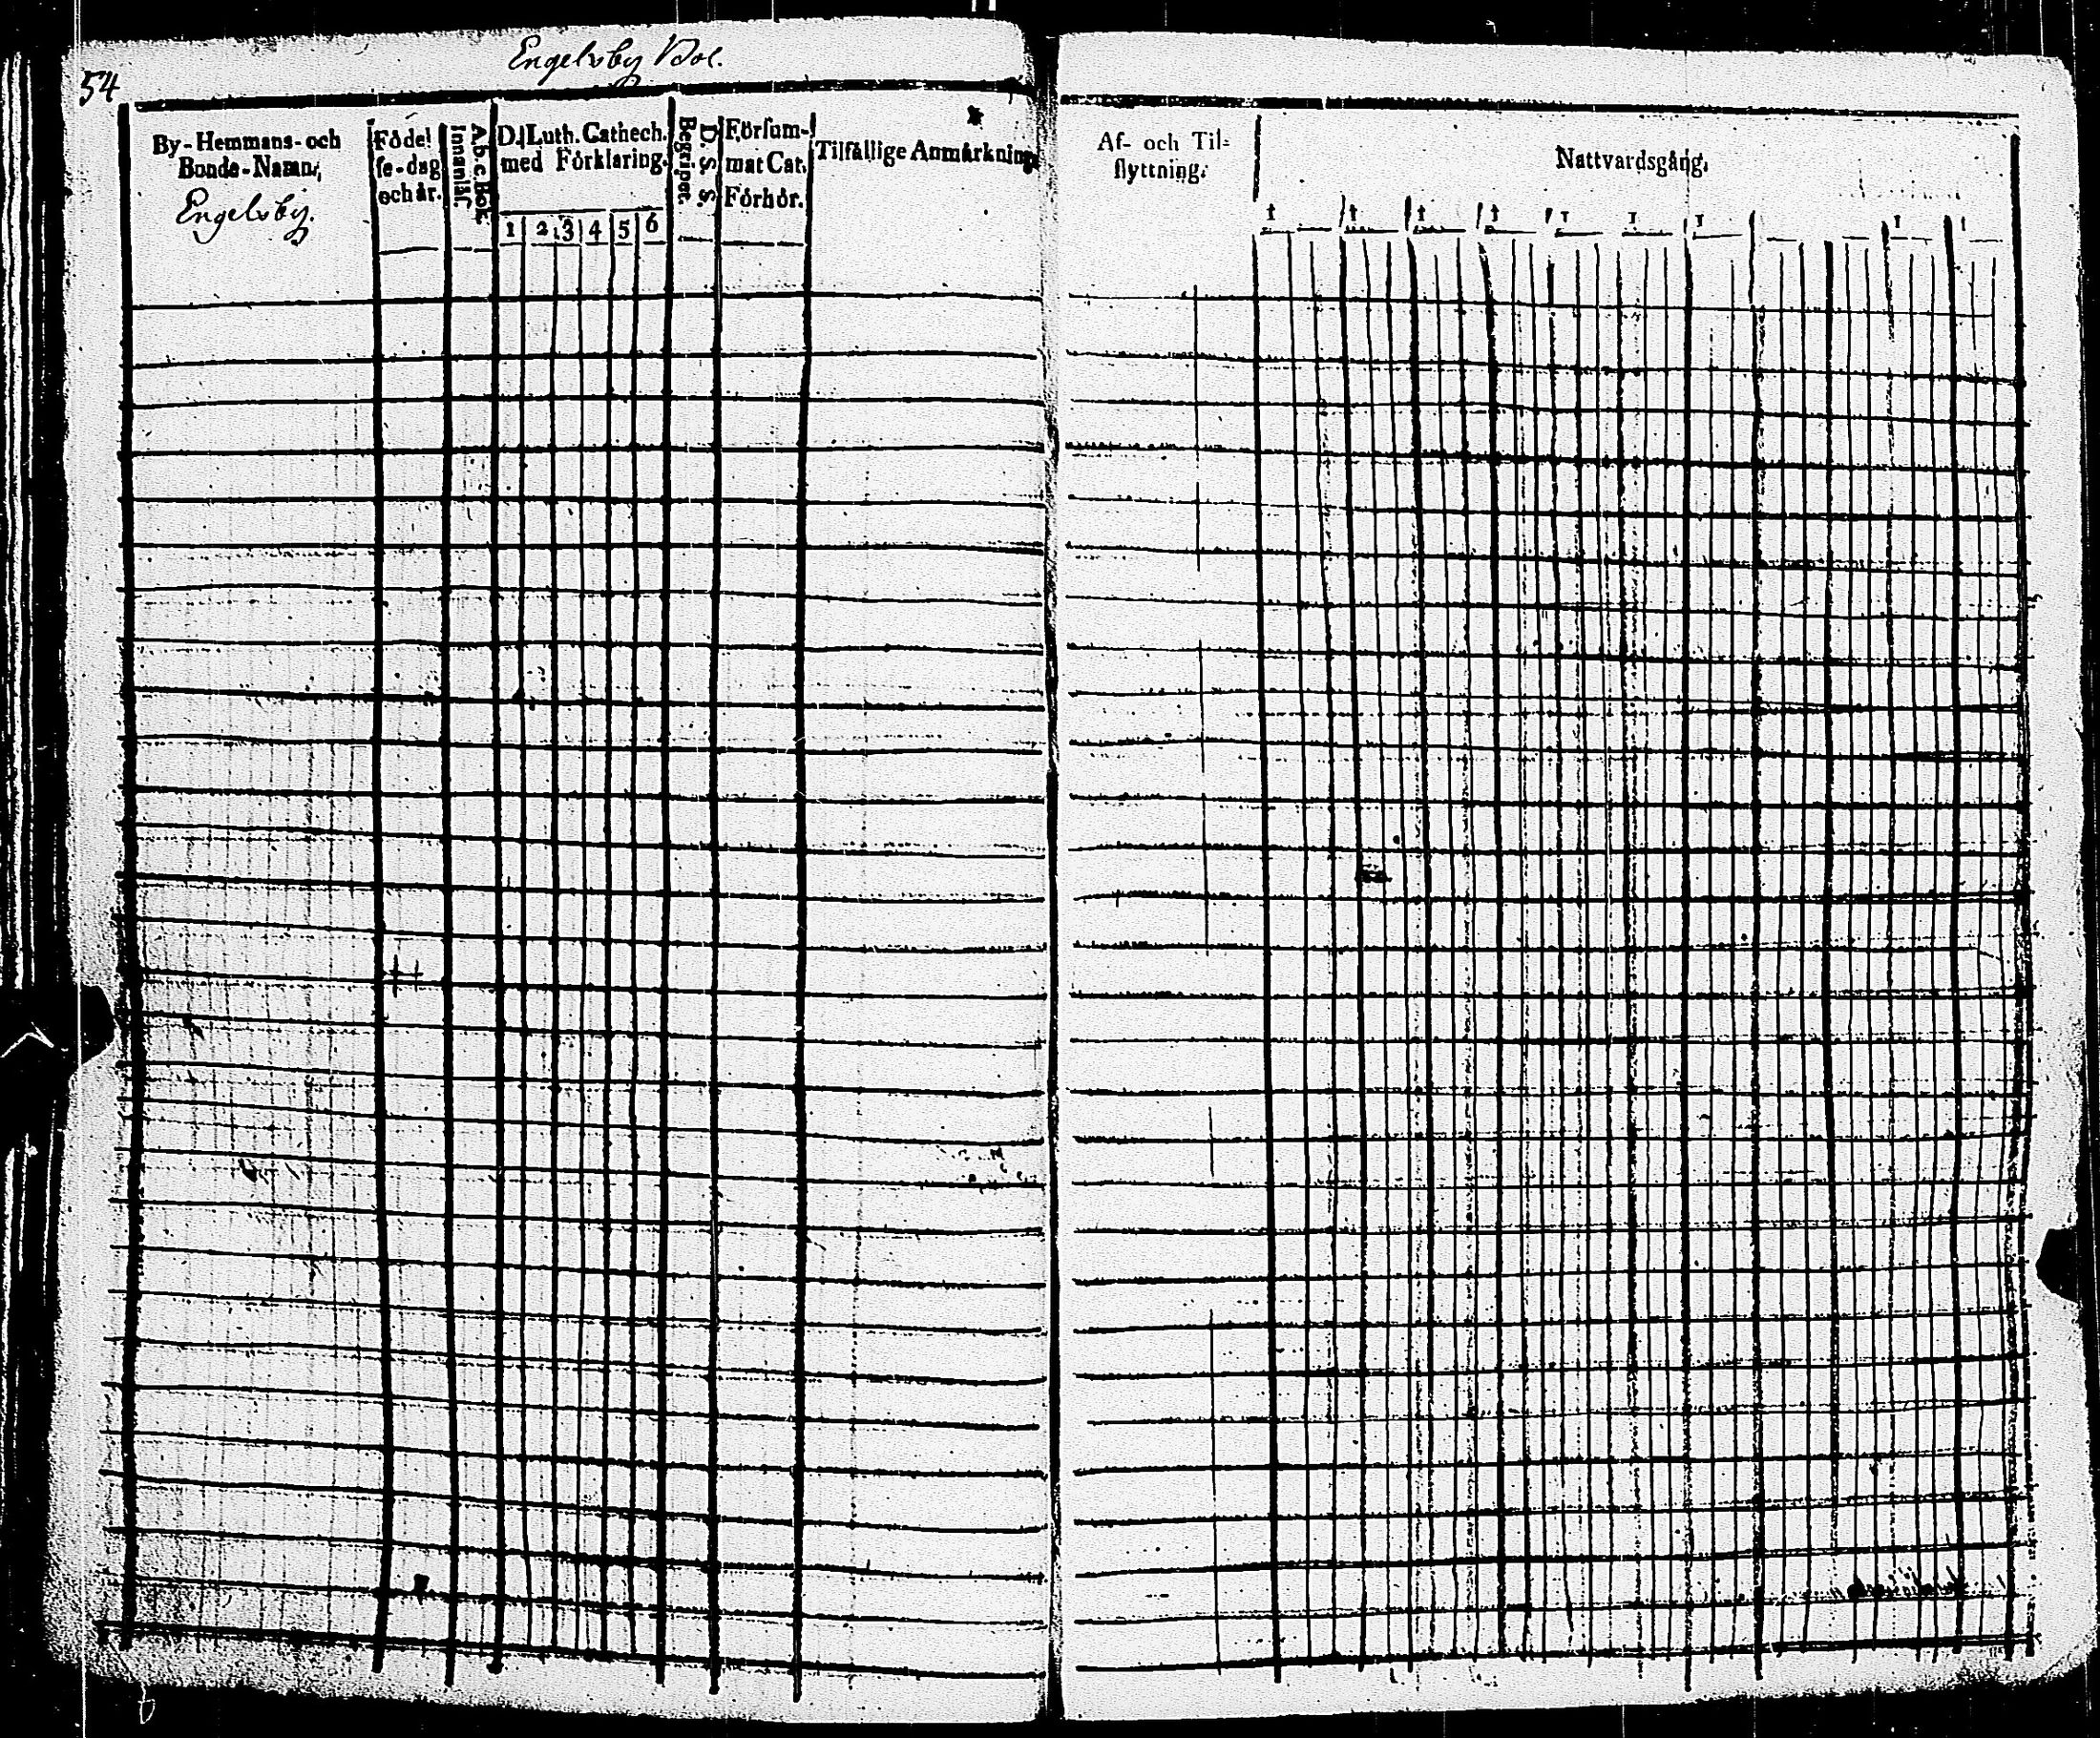 54
Engelsby Bol.
By-Hemmans-och
Bonde-Namn,
Engelsby.
Födel
se-dag
och år.
A.b.c.Bok.
Innanläs.
D. Luth. Cathech.
med Förklaring.
1 2 3 4 5 6
D. S. S.
Begripet.
Försum-
mat Cat.
Förhör.
Tilfällige Anmärkning.
Af- och Til-
flyttning.
Nattvardsgång.